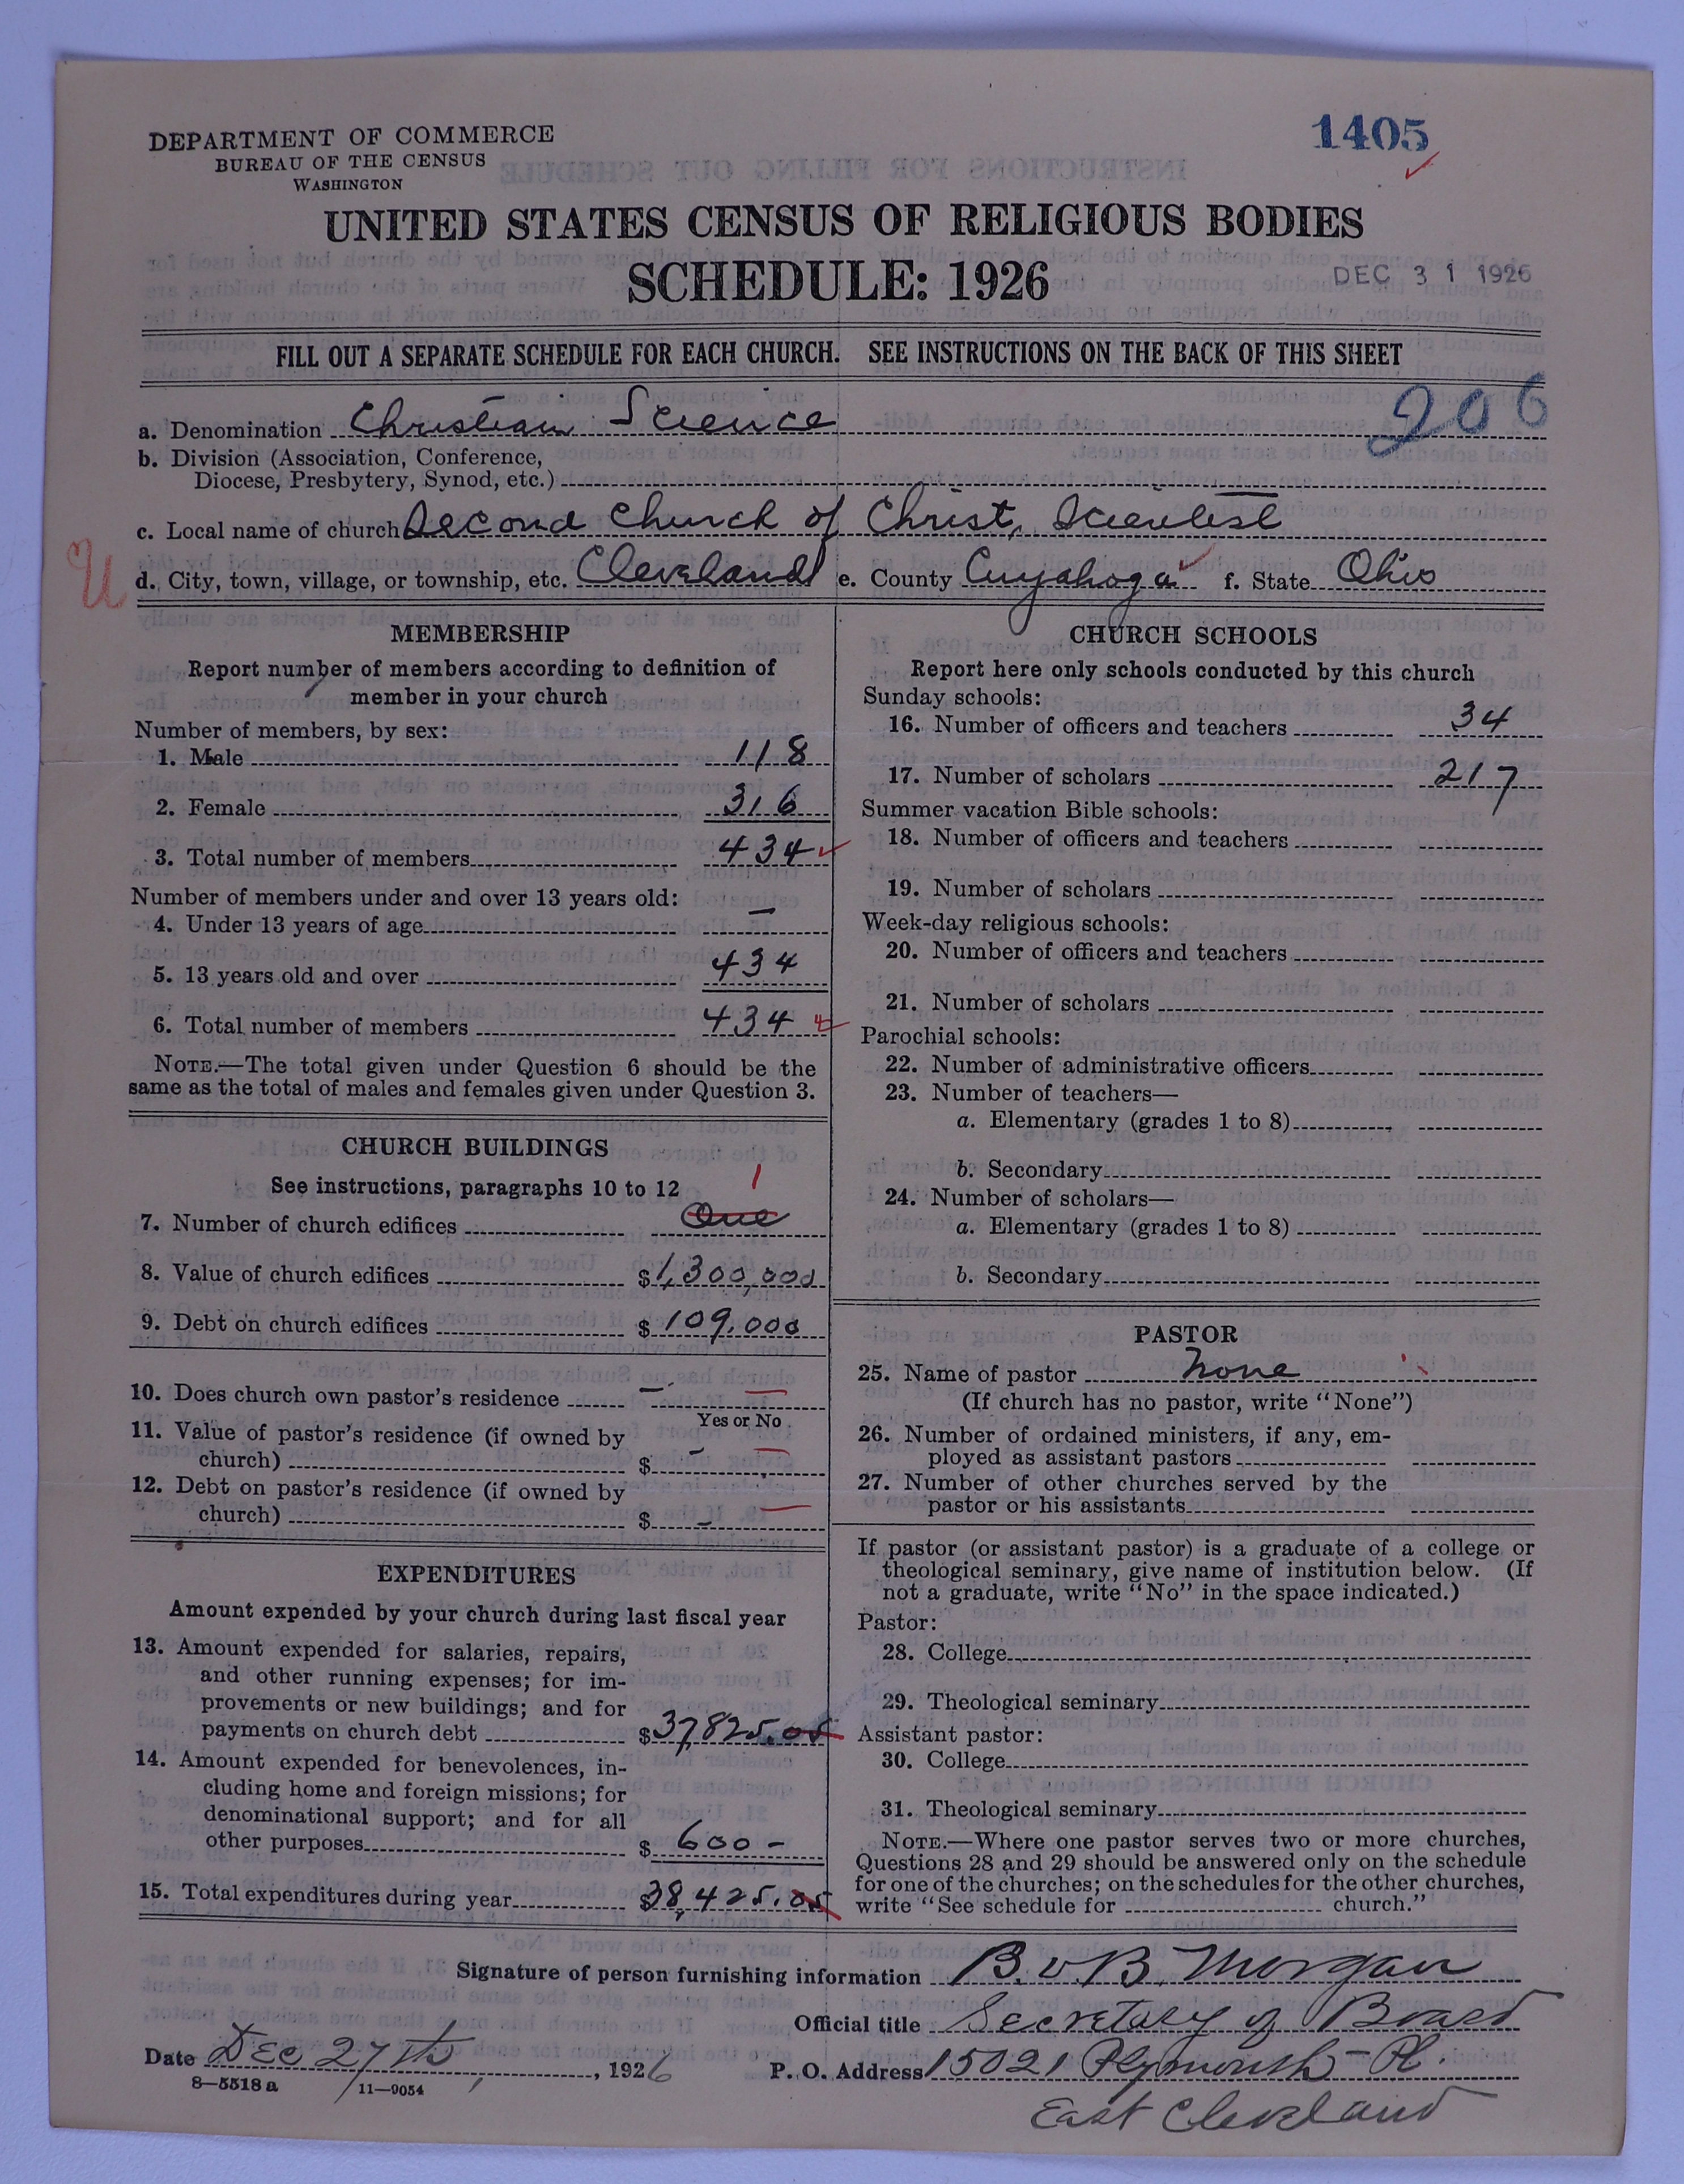 DEPARTMENT OF COMMERCE
BUREAU OF THE CENSUS
WASHINGTON
1405
UNITED STATES CENSUS OF RELIGIOUS BODIES
SCHEDULE: 1926
DEC 31 1926
FILL OUT A SEPARATE SCHEDULE FOR EACH CHURCH. SEE INSTRUCTIONS ON THE BACK OF THIS SHEET
206
a. Denomination Christian Science
b. Division (Association, Conference,
Diocese, Presbytery, Synod, etc.)
c. Local name of church Second Church of Christ, Scientist
U d. City, town, village, or township, etc. Cleveland e. County Cuyahoga f. State Ohio
MEMBERSHIP
Report number of members according to definition of
member in your church
Number of members, by sex:
1. Male 118
2. Female 316
3. Total number of members 434
Number of members under and over 13 years old:
4. Under 13 years of age —
5. 13 years old and over 434
6. Total number of members 434
NOTE.—The total given under Question 6 should be the
same as the total of males and females given under Question 3.
CHURCH BUILDINGS
See instructions, paragraphs 10 to 12
1
7. Number of church edifices One
8. Value of church edifices $1,300,000
9. Debt on church edifices $109,000
10. Does church own pastor's residence — —
Yes or No
11. Value of pastor's residence (if owned by
church) $ – —
12. Debt on pastor's residence (if owned by
church) $ – —
EXPENDITURES
Amount expended by your church during last fiscal year
13. Amount expended for salaries, repairs,
and other running expenses; for im-
provements or new buildings; and for
payments on church debt $37,825.05
14. Amount expended for benevolences, in-
cluding home and foreign missions; for
denominational support; and for all
other purposes $600 –
15. Total expenditures during year $38,425.05
CHURCH SCHOOLS
Report here only schools conducted by this church
Sunday schools:
16. Number of officers and teachers 34
17. Number of scholars 217
Summer vacation Bible schools:
18. Number of officers and teachers
19. Number of scholars
Week-day religious schools:
20. Number of officers and teachers
21. Number of scholars
Parochial schools:
22. Number of administrative officers
23. Number of teachers—
a. Elementary (grades 1 to 8)
b. Secondary
24. Number of scholars—
a. Elementary (grades 1 to 8)
b. Secondary
PASTOR
25. Name of pastor None
(If church has no pastor, write "None")
26. Number of ordained ministers, if any, em-
ployed as assistant pastors
27. Number of other churches served by the
pastor or his assistants
If pastor (or assistant pastor) is a graduate of a college or
theological seminary, give name of institution below. (If
not a graduate, write "No" in the space indicated.)
Pastor:
28. College
29. Theological seminary
Assistant pastor:
30. College
31. Theological seminary
NOTE.—Where one pastor serves two or more churches,
Questions 28 and 29 should be answered only on the schedule
for one of the churches; on the schedules for the other churches,
write "See schedule for church."
Signature of person furnishing information B. v B. Morgan
Official title Secretary of Board
Date Dec 27th, 1926 P. O. Address 15021 Plymouth Pl.
8—5518 a 11—9054
East Cleveland